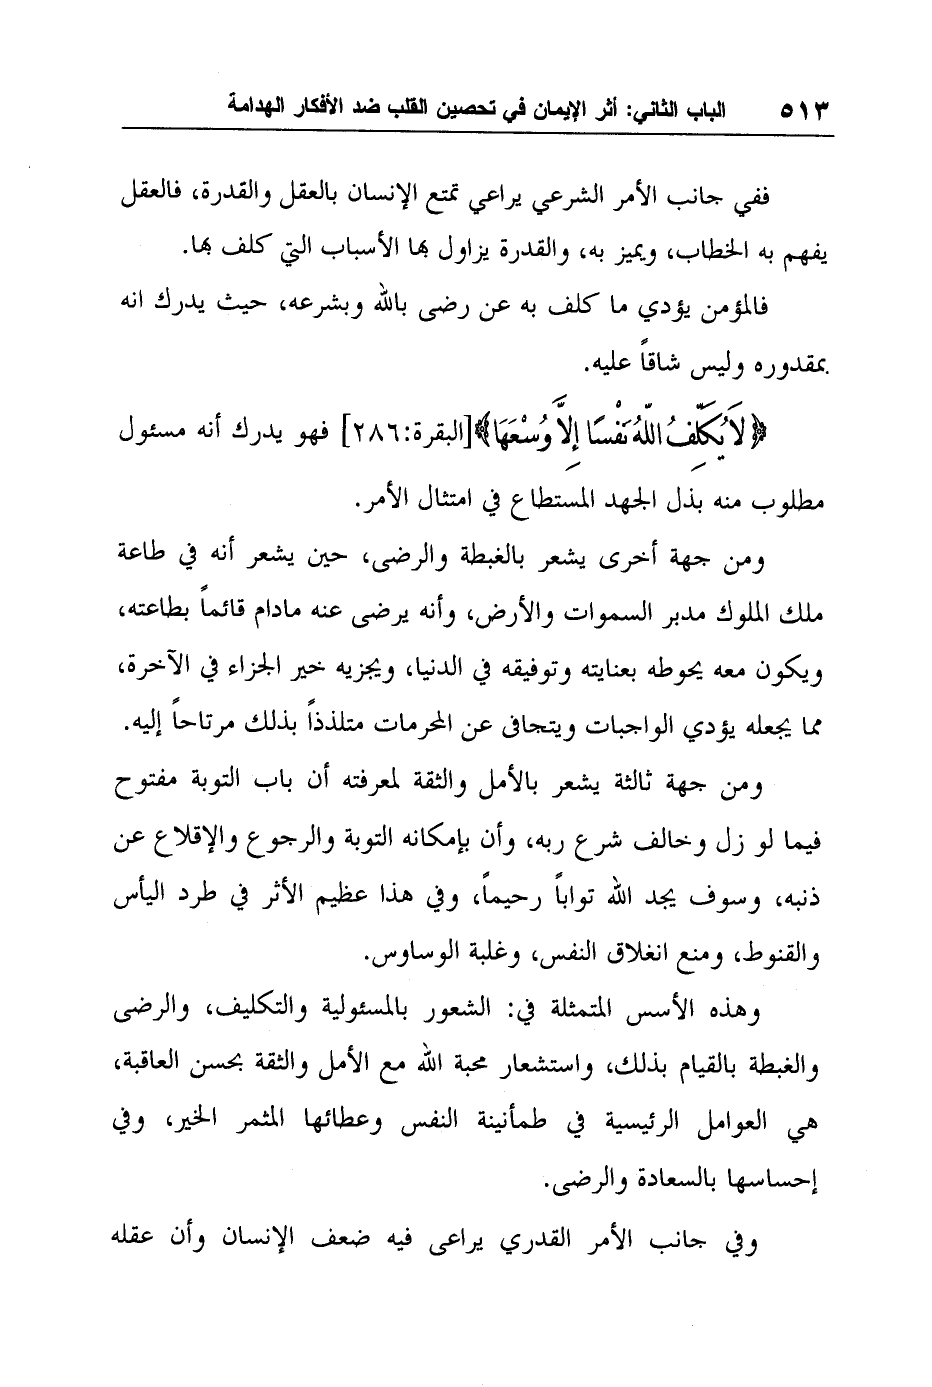 ٥١٣ الباب الثاني: أثر الإيمان في تحصين القلب ضد الأفكار الهدامة
ففي جانب الأمر الشرعي يراعي تمتع الإنسان بالعقل والقدرة، فالعقل
يفهم به الخطاب، ويميز به، والقدرة يزاول بها الأسباب التي كلف بها.
فالمؤمن يؤدي ما كلف به عن رضى بالله وبشرعه، حيث يدرك انه
بمقدوره وليس شاقاً عليه.
﴿لَا يُكَلِّفُ اللَّهُ نَفْسًا إِلَّا وُسْعَهَا﴾[البقرة:٢٨٦] فهو يدرك أنه مسئول
مطلوب منه بذل الجهد المستطاع في امتثال الأمر.
ومن جهة أخرى يشعر بالغبطة والرضى، حين يشعر أنه في طاعة
ملك الملوك مدبر السموات والأرض، وأنه يرضى عنه مادام قائماً بطاعته،
ويكون معه يحوطه بعنايته وتوفيقه في الدنيا، ويجزيه خير الجزاء في الآخرة،
مما يجعله يؤدي الواجبات ويتجافى عن المحرمات متلذذاً بذلك مرتاحاً إليه.
ومن جهة ثالثة يشعر بالأمل والثقة لمعرفته أن باب التوبة مفتوح
فيما لو زل وخالف شرع ربه، وأن بإمكانه التوبة والرجوع والإقلاع عن
ذنبه، وسوف يجد الله تواباً رحيماً، وفي هذا عظيم الأثر في طرد اليأس
والقنوط، ومنع انغلاق النفس، وغلبة الوساوس.
وهذه الأسس المتمثلة في: الشعور بالمسئولية والتكليف، والرضى
والغبطة بالقيام بذلك، واستشعار محبة الله مع الأمل والثقة بحسن العاقبة،
هي العوامل الرئيسية في طمأنينة النفس وعطائها المثمر الخير، وفي
إحساسها بالسعادة والرضى.
وفي جانب الأمر القدري يراعى فيه ضعف الإنسان وأن عقله